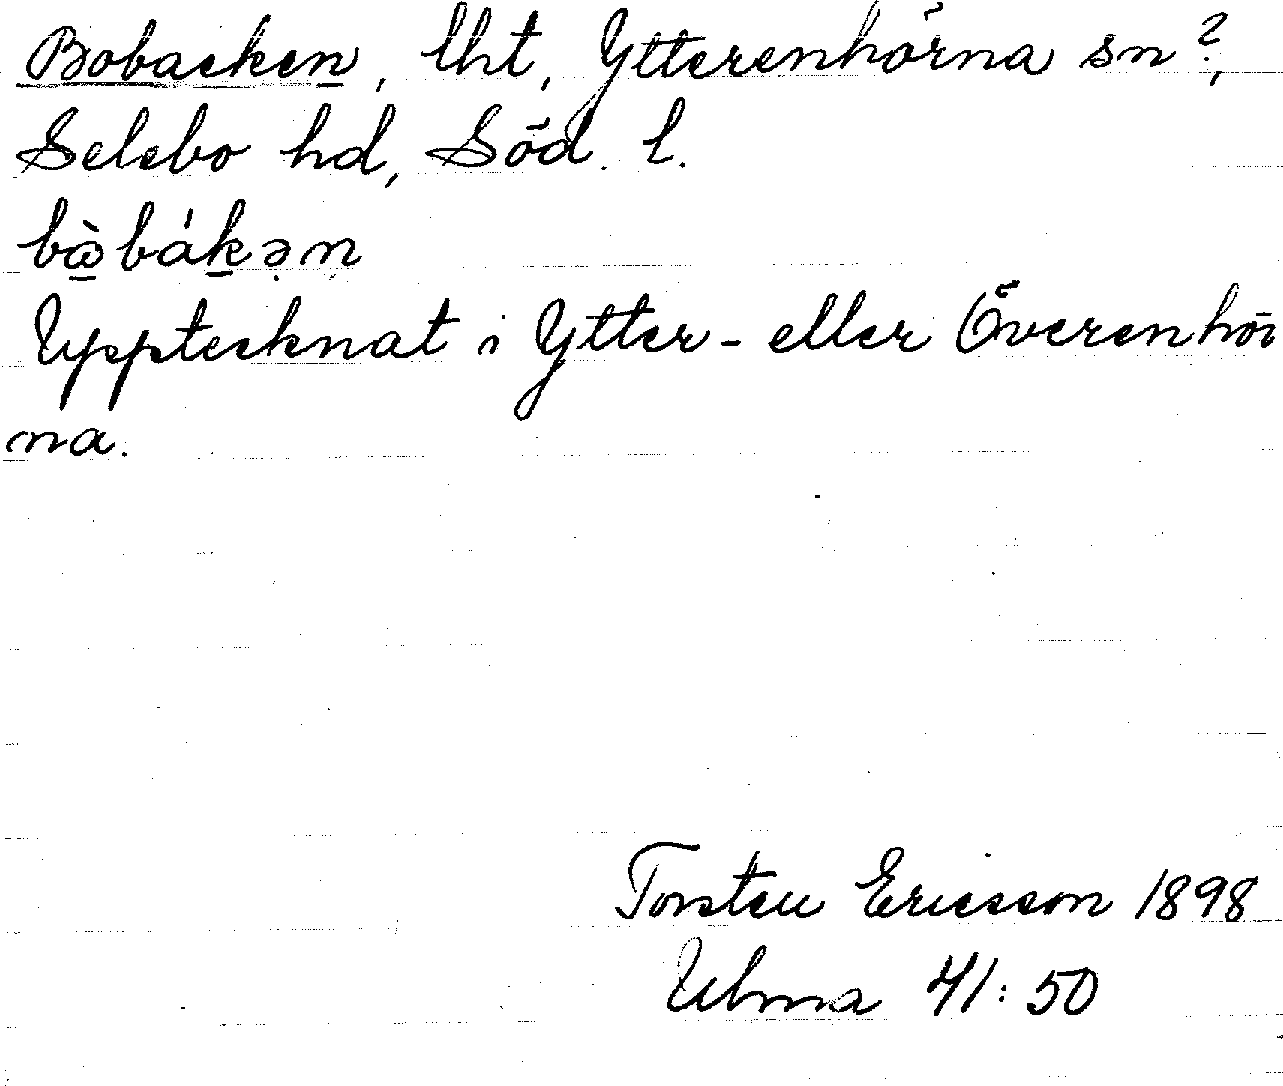 Bobacken, lht, Ytterenhörna sn?,
Selebo hd, Söd. l.
bὼbák̠ən
Upptecknat i Ytter- eller Överenhör
na.
Torsten Ericsson 1898
Ulma 41:50